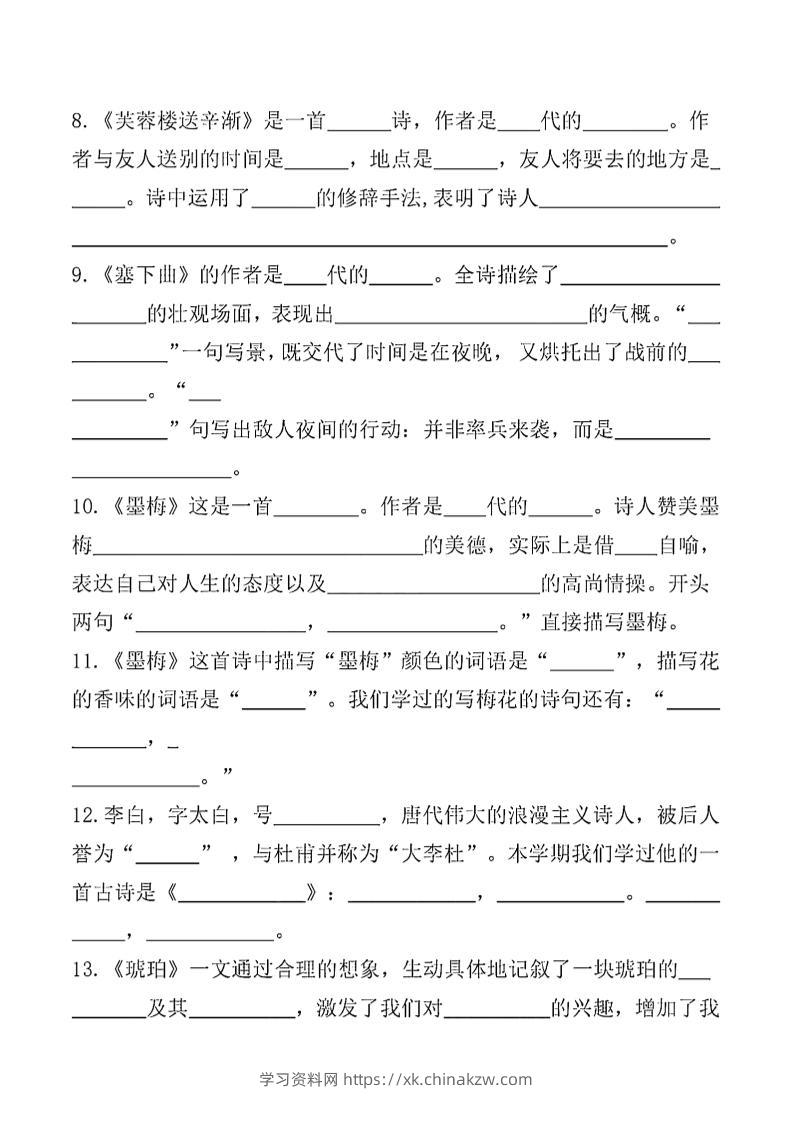 8.《芙蓉楼送辛渐》是一首______诗，作者是____代的________。作
者与友人送别的时间是______，地点是______，友人将要去的地方是_
_____。诗中运用了______的修辞手法,表明了诗人_________________
________________________________________________________。
9.《塞下曲》的作者是____代的______。全诗描绘了_______________
_______的壮观场面，表现出________________________的气概。“___
_________”一句写景，既交代了时间是在夜晚， 又烘托出了战前的___
_______。“___
_________”句写出敌人夜间的行动：并非率兵来袭，而是_________
_______________。
10.《墨梅》这是一首________。作者是____代的______。诗人赞美墨
梅_______________________________的美德，实际上是借____自喻，
表达自己对人生的态度以及____________________的高尚情操。开头
两句“________________，________________。”直接描写墨梅。
11.《墨梅》这首诗中描写“墨梅”颜色的词语是“______”，描写花
的香味的词语是“______”。我们学过的写梅花的诗句还有：“_____
_______，_
____________。”
12.李白，字太白，号__________，唐代伟大的浪漫主义诗人，被后人
誉为“______” ，与杜甫并称为“大李杜”。本学期我们学过他的一
首古诗是《____________》：____________，____________。_______
_____，____________。
13.《琥珀》一文通过合理的想象，生动具体地记叙了一块琥珀的___
_______及其__________，激发了我们对__________的兴趣，增加了我
学习资料网 https://xk.chinakzw.com